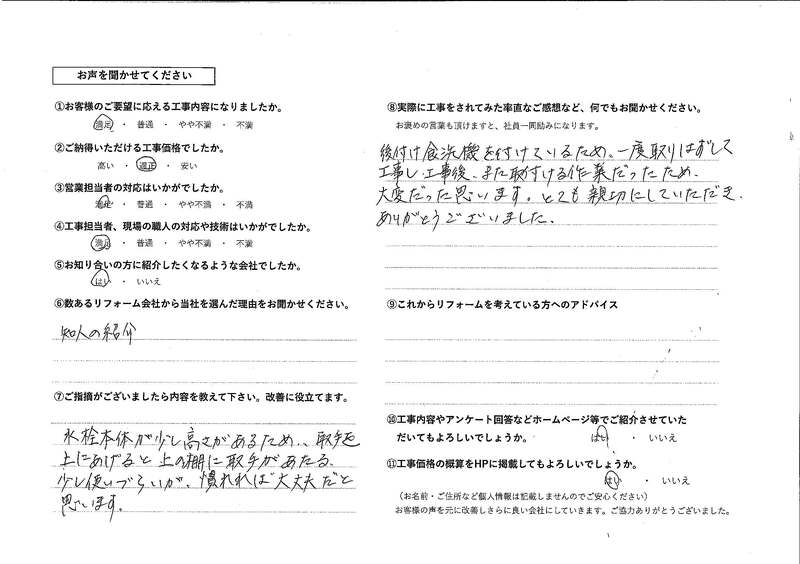 お声を聞かせてください
①お客様のご要望に応える工事内容になりましたか。
満足 ・ 普通 ・ やや不満 ・ 不満
②ご納得いただける工事価格でしたか。
高い ・ 適正 ・ 安い
③営業担当者の対応はいかがでしたか。
満足 ・ 普通 ・ やや不満 ・ 不満
④工事担当者、現場の職人の対応や技術はいかがでしたか。
満足 ・ 普通 ・ やや不満 ・ 不満
⑤お知り合いの方に紹介したくなるような会社でしたか。
はい ・ いいえ
⑥数あるリフォーム会社から当社を選んだ理由をお聞かせください。
知人の紹介
⑦ご指摘がございましたら内容を教えて下さい。改善に役立てます。
水栓本体が少し高さがあるため、、取手を
上にあげると上の棚に取手があたる、
少し使いづらいが、慣れれば大丈夫だと
思います。
⑧実際に工事をされてみた率直なご感想など、何でもお聞かせください。
お褒めの言葉も頂けますと、社員一同励みになります。
後付け食洗機を付けているため、一度取りはずして
工事し、工事後、また取付ける作業だったため、
大変だった思います。とても親切にしていただき、
ありがとうございました、
⑨これからリフォームを考えている方へのアドバイス
⑩工事内容やアンケート回答などホームページ等でご紹介させていた
だいてもよろしいでしょうか。 はい ・ いいえ
⑪工事価格の概算をHPに掲載してもよろしいでしょうか。
はい ・ いいえ
（お名前・ご住所など個人情報は記載しませんのでご安心ください）
お客様の声を元に改善しさらに良い会社にしていきます。ご協力ありがとうございました。